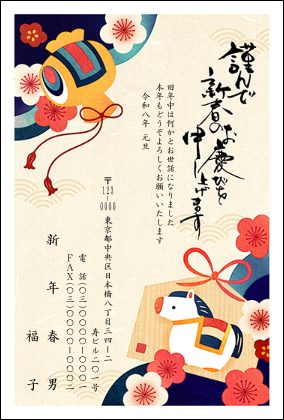 謹んで
新春のお慶びを
申し上げます
旧年中は何かとお世話になりました
本年もどうぞよろしくお願いいたします
令和八年 元旦
〒123-0000
東京都中央区日本橋八丁目三四一二
寿ビル二〇一号
電話(〇三)〇〇〇〇-〇〇〇一
FAX(〇三)〇〇〇〇-〇〇〇二
新年 春男
福子